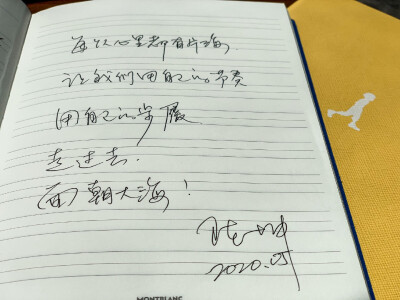 每次心里都有片海
让我们用自己的节奏
用自己的步履
走过去.
面朝大海！
陈坤
2020.05
MONTBLANC